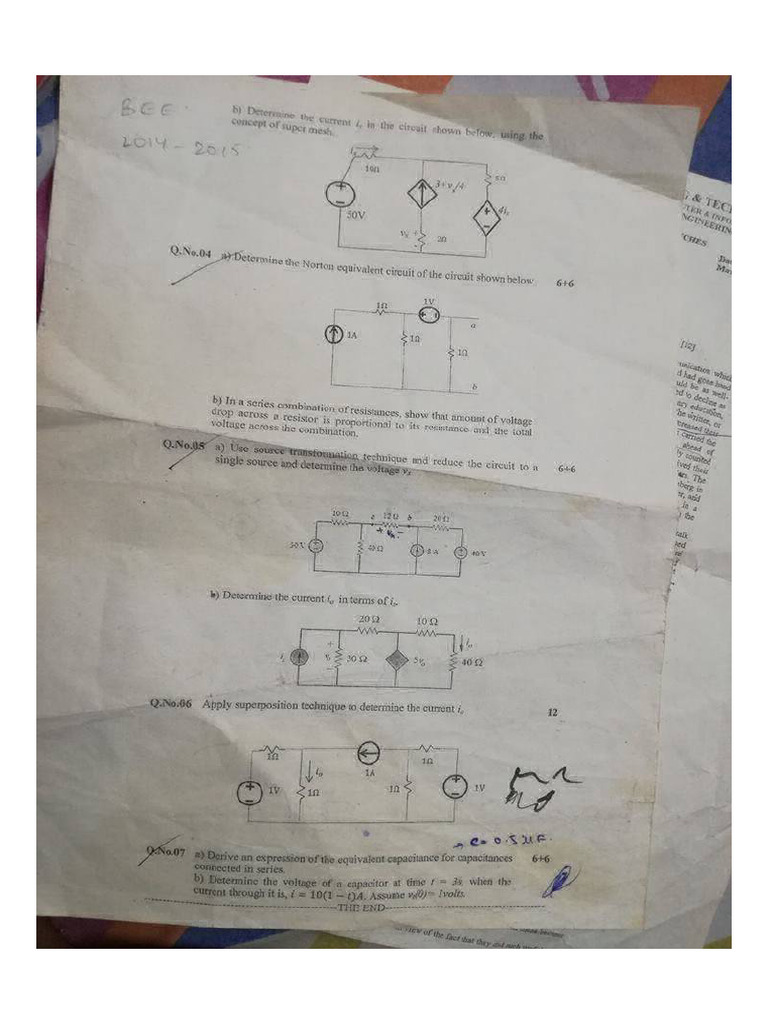 BEE
2014-2015
b) Determine the current iₓ in the circuit shown below, using the
concept of super mesh.
10Ω
50V
3+vₓ/4
vₓ
+
-
2Ω
+
-
Q.No.04 a) Determine the Norton equivalent circuit of the circuit shown below 6+6
1Ω
1V
1A
1Ω
1Ω
a
b
b) In a series combination of resistances, show that amount of voltage
drop across a resistor is proportional to its resistance and the total
voltage across the combination.
Q.No.05 a) Use source transformation technique and reduce the circuit to a 6+6
single source and determine the voltage vₓ
a
12 Ω
b
20 Ω
+ vₓ -
40 V
b) Determine the current iₒ in terms of iₛ.
20 Ω
10 Ω
+
-
30 Ω
iₒ
40 Ω
Q.No.06 Apply superposition technique to determine the current iₒ 12
1Ω
1V
iₒ
1Ω
1A
1Ω
1Ω
1V
→ C= 0.5 µF.
Q.No.07 a) Derive an expression of the equivalent capacitance for capacitances 6+6
connected in series.
b) Determine the voltage of a capacitor at time t = 3s, when the
current through it is, i = 10(1 − t)A. Assume v(0)= 1volts.
THE END
G & TECH
NGINEERIN
CHES
[12]
unication which
d had gone hand
uld be as well-
ed to decline as
ary education,
he written, or
carried the
ahead of
ly counted
The
in
and
in a
the
talk
view of the fact that they and each